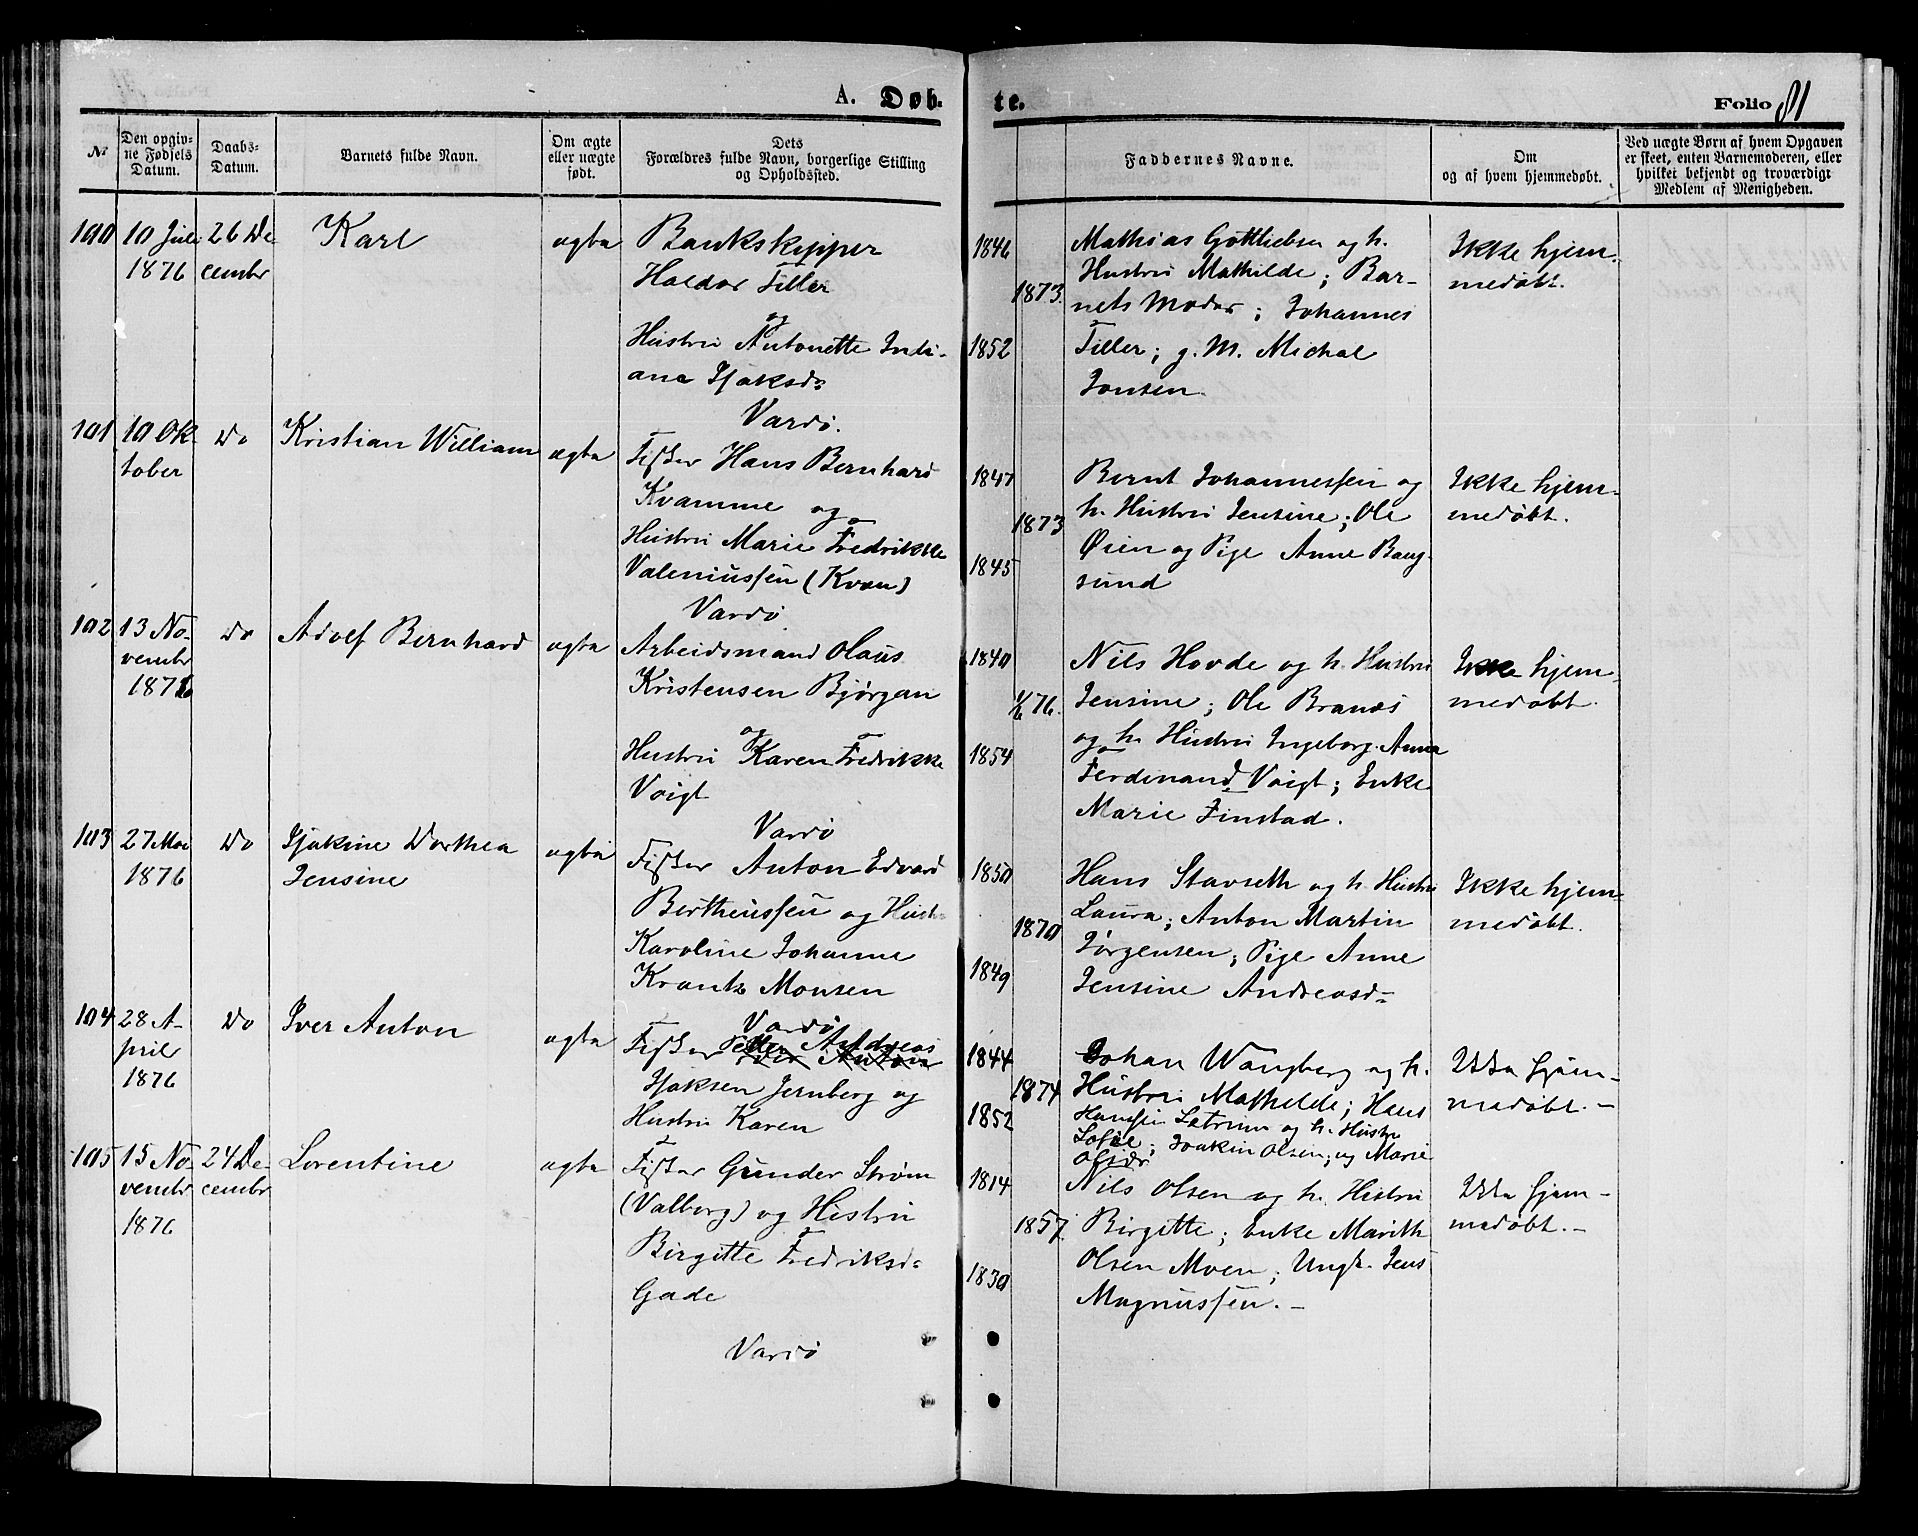 A. Døb-
te.
Folio 81
№
Den opgiv-
ne Fødsels
Datum.
Daabs-
Datum.
Barnets fulde Navn.
Om ægte
eller uægte
født.
Dets
Forældres fulde Navn, borgerlige Stilling
og Opholdssted.
Faddernes Navne.
Om
og af hvem hjemmedøbt.
Ved uægte Børn af hvem Opgaven
er skeet, enten Barnemoderen, eller
hvilket bekjendt og troværdigt
Medlem af Menigheden.
100
10 Juli
1876
26 De
cembr
Karl
ægte
Bankskipper
Haldor Tiller
og
Hustru Antonette Indi-
ana Isaksd:
Vardø.
1846
1873
1852
Mathias Gottliebsen og h.
Hustru Mathilde; Bar-
nets Moder; Johannes
Tiller; g. M. Michal
Jonsen
Ikke hjem-
medøbt.
101
10 Ok-
tober
Do
Kristian William
ægte
Fisker Hans Bernhard
Kvamme og
Hustru Marie Fredrikke
Valeniussen (Kvæn)
Vardø
1847
1873
1845
Bernt Johannessen og
h. Hustru Jensine; Ole
Øien og Pige Anne Baug-
sund
Ikke hjem-
medøbt.
102
13 No-
vembr
1876
Do
Adolf Bernhard
ægte
Arbeidsmand Olaus
Kristensen Bjørgan
og
Hustru Karen Fredrikke
Voigt
Vardø
1840
1/6 76.
1854
Nils Hovde og h. Hustru
Jensine; Ole Branæs
og h. Hustru Ingeborg. Anna
Ferdinand Voigt; Enke
Marie Finstad.
Ikke hjem-
medøbt.
103
27 Mai
1876
Do
Isakine Dorthea
Jensine
ægte
Fisker Anton Edvard
Bertheussen og Hust:
Karoline Johanne
Krantz Monsen
Vardø
1850
1870
1849
Hans Stavseth og h. Hustru
Laura; Anton Martin
Jørgensen; Pige Anne
Jensine Andreasd:
Ikke hjem-
medøbt.
104
28 A-
pril
1876
Do
Iver Anton
ægte
Fisker Peder Andreas
Isaksen Jernberg og
Hustru Karen
1844
1874
1852
Johan Wangberg og h.
Hustru Mathilde; Hans
Hansen Sætrum og h. Hustru
Sofie; Joakim Olsen; og Marie
Olsdr
Ikke hjem-
medøbt.-
105
15 No-
vembr
1876
24 De-
cembr
Lorentine
ægte
Fisker Gunder Strøm
(Valborg) og Hustru
Birgitte Fredriksd:
Gade
Vardø
1814
1857.
1830
Nils Olsen og h. Hustru
Birgitte; Enke Marith
Olsen Moen; Ungk. Jens
Magnussen.-
Ikke hjem-
medøbt.-